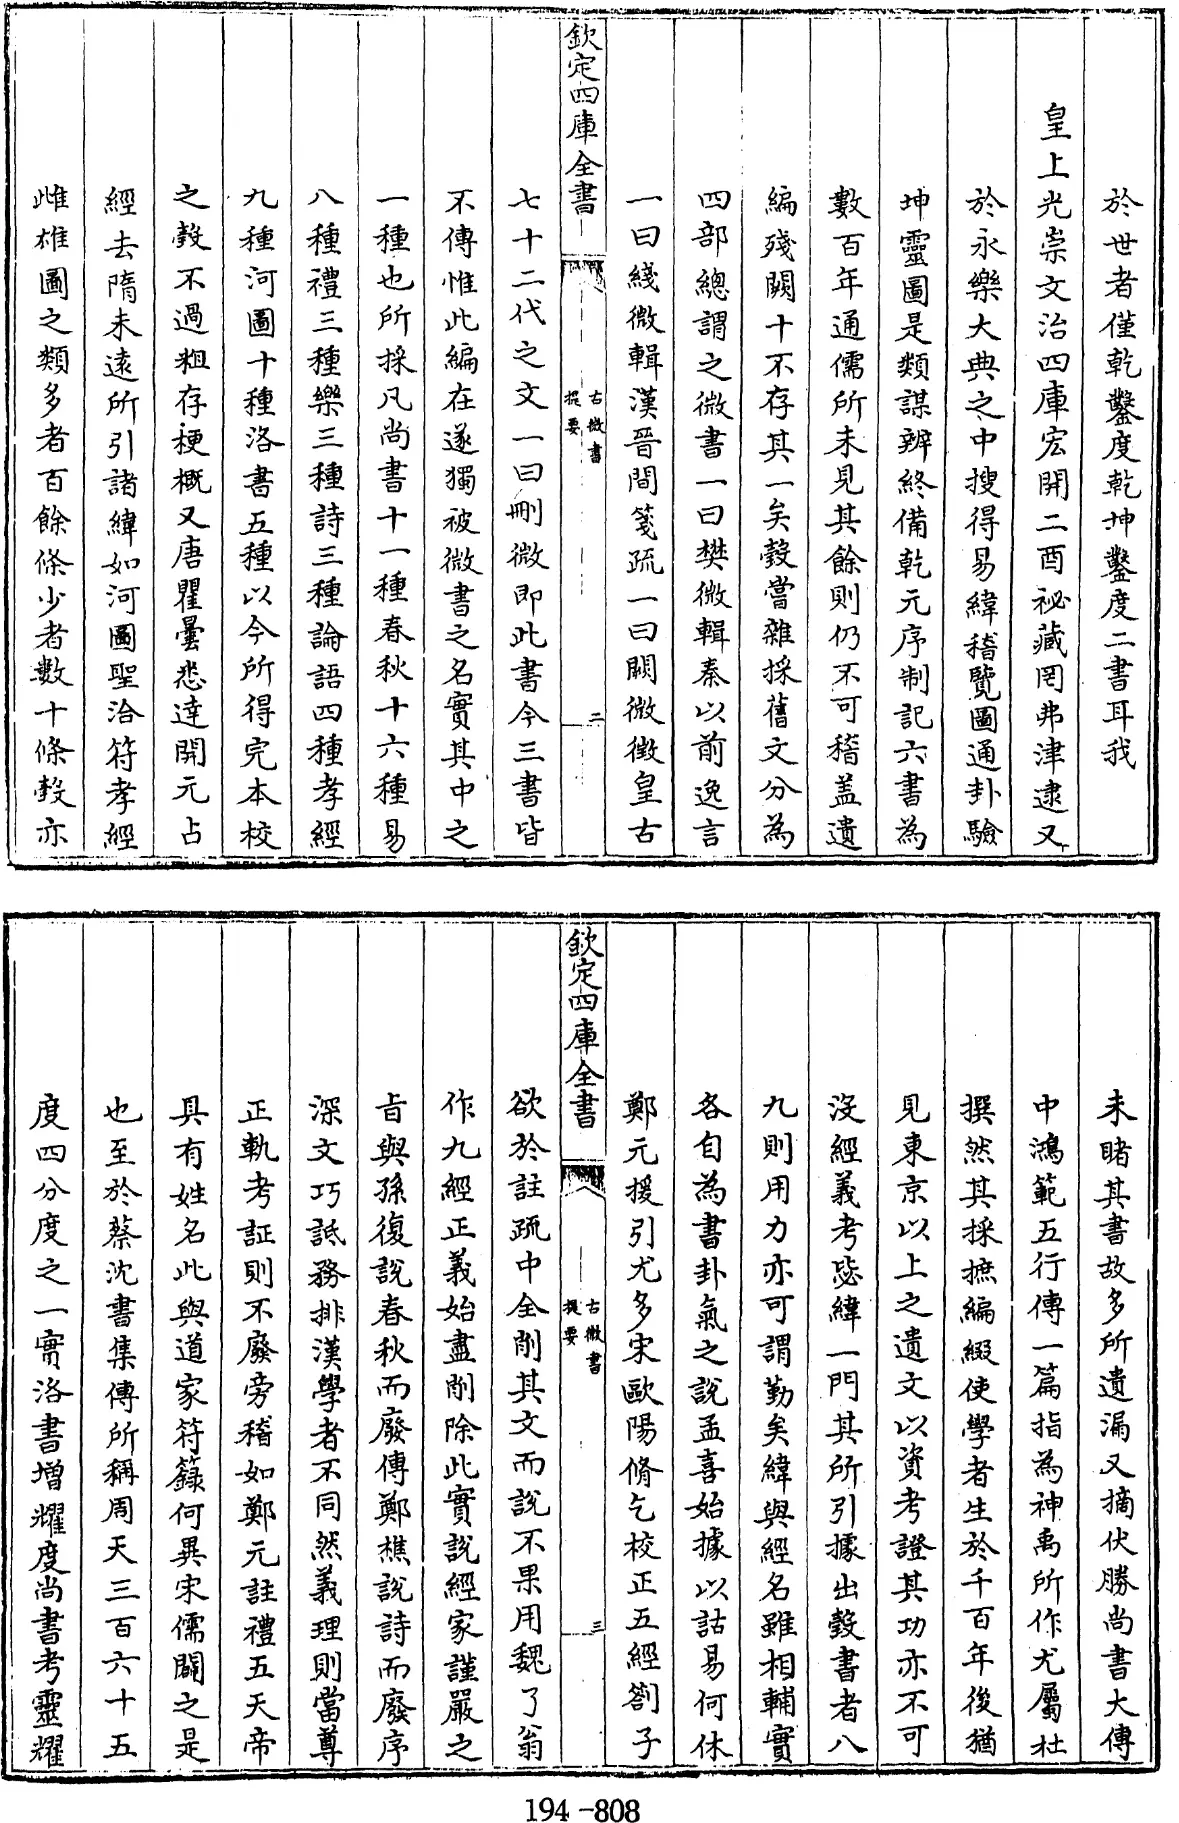 於世者僅乾鑿度乾坤鑿度二書耳我
皇上光崇文治四庫宏開二酉祕藏罔弗津逮又
於永樂大典之中搜得易緯稽覽圖通卦驗
坤靈圖是類謀辨終備乾元序制記六書為
數百年通儒所未見其餘則仍不可稽盖遺
編殘闕十不存其一矣瑴嘗雜採舊文分為
四部總謂之微書一曰樊微輯秦以前逸言
一曰綫微輯漢晉間箋疏一曰闕微徴皇古
欽定四庫全書
古微書
提要
二
七十二代之文一曰刪微即此書今三書皆
不傳惟此編在遂獨被微書之名實其中之
一種也所採凡尚書十一種春秋十六種易
八種禮三種樂三種詩三種論語四種孝經
九種河圖十種洛書五種以今所得完本校
之瑴不過粗存梗概又唐瞿曇悉達開元占
經去隋未遠所引諸緯如河圖聖洽符孝經
雌雄圖之類多者百餘條少者數十條瑴亦
未睹其書故多所遺漏又摘伏勝尚書大傳
中鴻範五行傳一篇指為神禹所作尤屬杜
撰然其採摭編綴使學者生於千百年後猶
見東京以上之遺文以資考證其功亦不可
沒經義考毖緯一門其所引據出瑴書者八
九則用力亦可謂勤矣緯與經名雖相輔實
各自為書卦氣之說孟喜始據以詁易何休
鄭元援引尤多宋歐陽脩乞校正五經劄子
欽定四庫全書
古微書
提要
三
欲於註疏中全削其文而說不果用魏了翁
作九經正義始盡削除此實說經家謹嚴之
旨與孫復說春秋而廢傳鄭樵說詩而廢序
深文巧詆務排漢學者不同然義理則當尊
正軌考証則不廢旁稽如鄭元註禮五天帝
具有姓名此與道家符籙何異宋儒闢之是
也至於蔡沈書集傳所稱周天三百六十五
度四分度之一實洛書增耀度尚書考靈耀
194-808